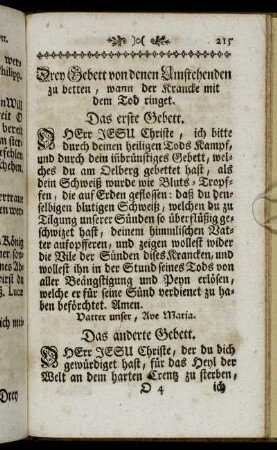 215
Drey Gebett von denen Umstehenden
zu betten, wann der Krancke mit
dem Tod ringet.
Das erste Gebett.
O HErr JESU Christe, ich bitte
durch deinen heiligen Tods Kampf,
und durch dein inbrünstiges Gebett, wel-
ches du am Oelberg gebettet hast, als
dein Schweiß wurde wie Bluts-Tropf-
fen, die auf Erden geflossen: daß du den-
selbigen blutigen Schweiß, welchen du zu
Tilgung unserer Sünden so überflüßig ge-
schwizet hast, deinem himmlischen Vat-
ter aufopfferen, und zeigen wollest wider
die Vile der Sünden dises Krancken, und
wollest ihn in der Stund seines Tods von
aller Beängstigung und Peyn erlösen,
welche er für seine Sünd verdienet zu ha-
ben beförchtet. Amen.
Vatter unser, Ave Maria.
Das anderte Gebett.
O HErr JESU Christe, der du dich
gewürdiget hast, für das Heyl der
Welt an dem harten Creutz zu sterben,
O 4 ich